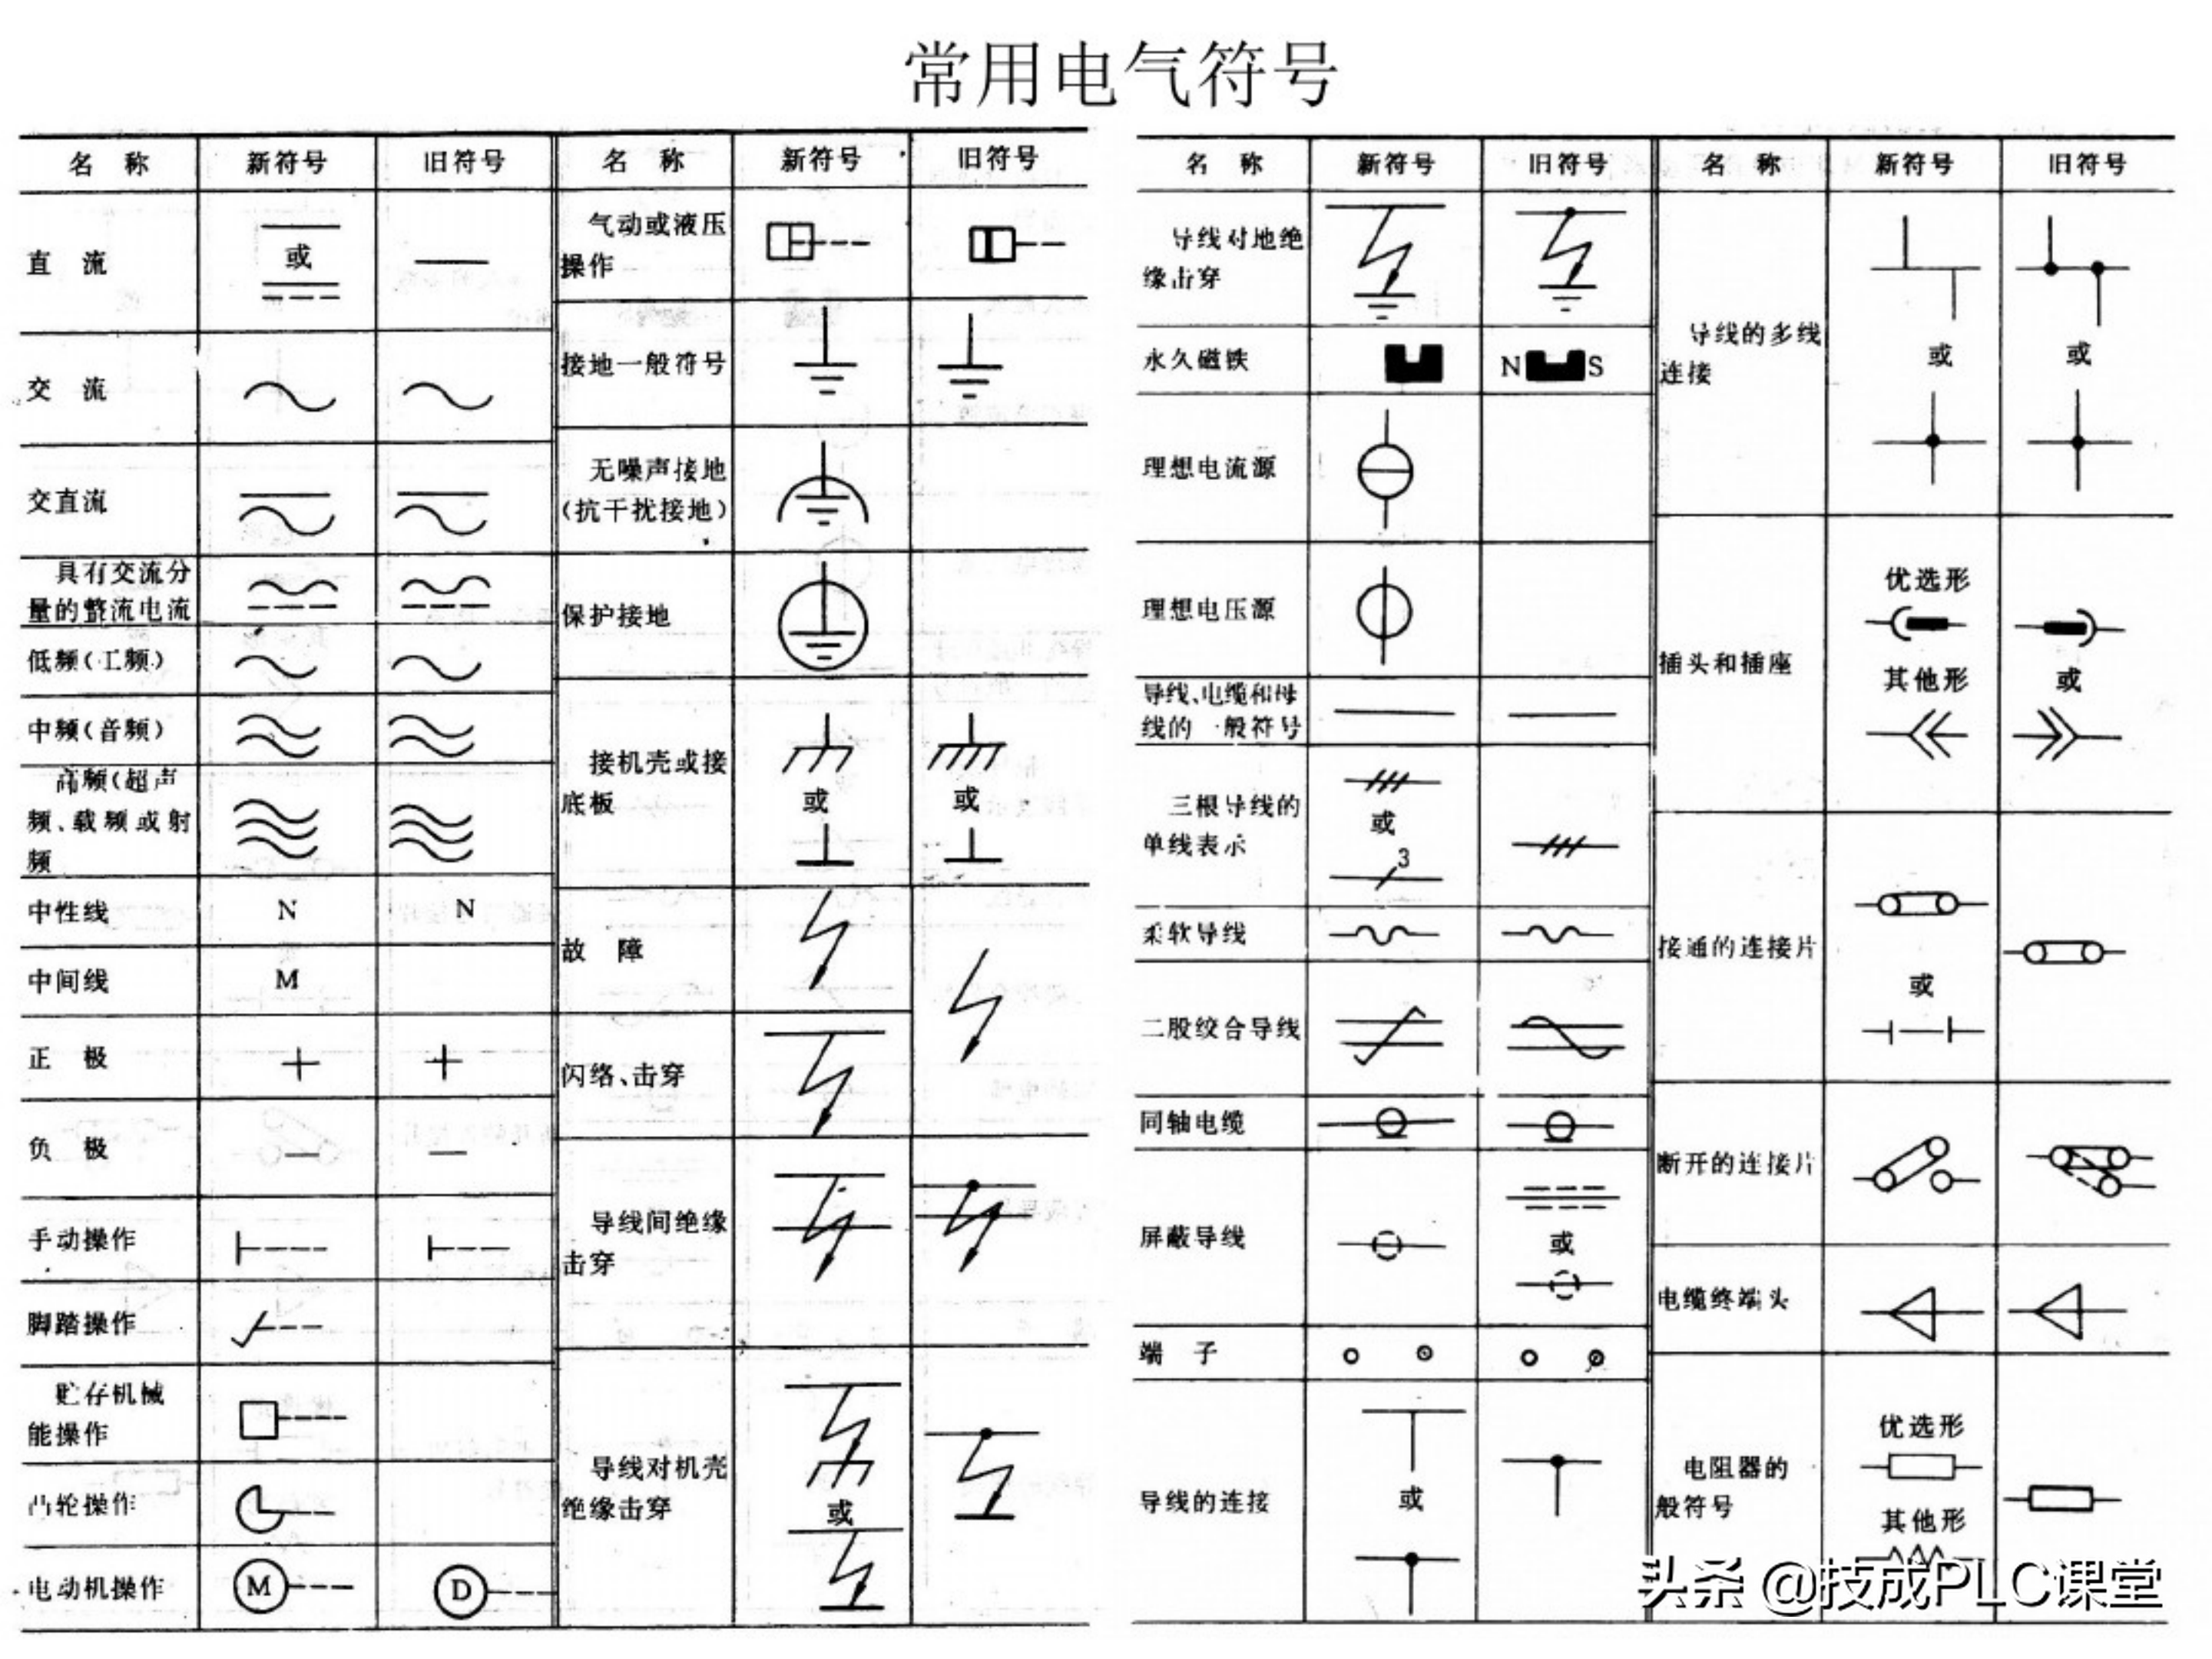 常用电气符号
名 称 新符号 旧符号
直 流
或
交 流
交直流
具有交流分
量的整流电流
低频(工频)
中频(音频)
高频(超声
频、载频或射
频
中性线 N N
中间线 M
正 极
负 极
手动操作
脚踏操作
贮存机械
能操作
凸轮操作
电动机操作 M D
名 称 新符号 旧符号
气动或液压
操作
接地一般符号
无噪声接地
(抗干扰接地)
保护接地
接机壳或接
底板
或 或
故 障
闪络、击穿
导线间绝缘
击穿
导线对机壳
绝缘击穿
或
名 称 新符号 旧符号
导线对地绝
缘击穿
永久磁铁 N S
理想电流源
理想电压源
导线、电缆和母
线的一般符号
三根导线的
单线表示
或
3
柔软导线
二股绞合导线
同轴电缆
屏蔽导线
或
端 子
导线的连接
或
名 称 新符号 旧符号
导线的多线
连接
或 或
插头和插座
优选形
其他形 或
接通的连接片
或
断开的连接片
电缆终端头
电阻器的
般符号
优选形
其他形
头条 @技成PLC课堂